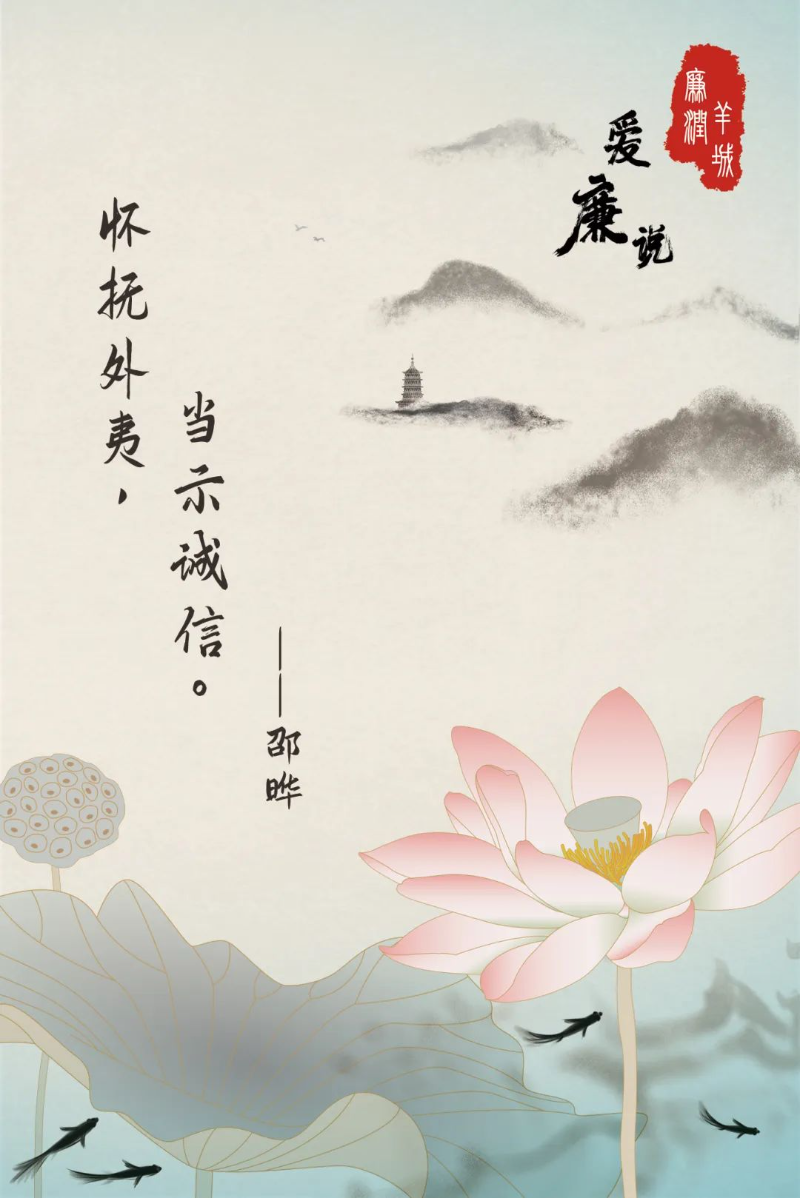 廉潤
羊城
爱廉说
怀抚外夷，
当示诚信。
——邵晔